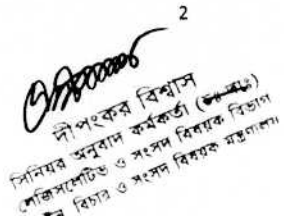 2
দীপংকর বিশ্বাস
সিনিয়র অনুবাদ কর্মকর্তা
লেজিসলেটিভ ও সংসদ বিষয়ক বিভাগ
বিচার ও সংসদ বিষয়ক মন্ত্রণালয়